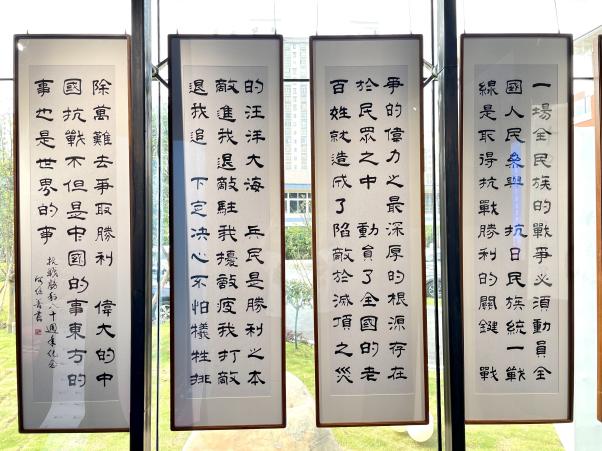 一場全民族的戰爭必須動員全
國人民參與 抗日民族統一戰
線是取得抗戰勝利的關鍵 戰
爭的偉力之最深厚的根源存在
於民眾之中 動員了全國的老
百姓就造成了陷敵於滅頂之災
的汪洋大海 兵民是勝利之本
敵進我退敵駐我擾敵疲我打敵
退我追 下定決心不怕犧牲排
除萬難去爭取勝利 偉大的中
國抗戰不但是中國的事東方的
事也是世界的事
抗戰勝利八十週年紀念